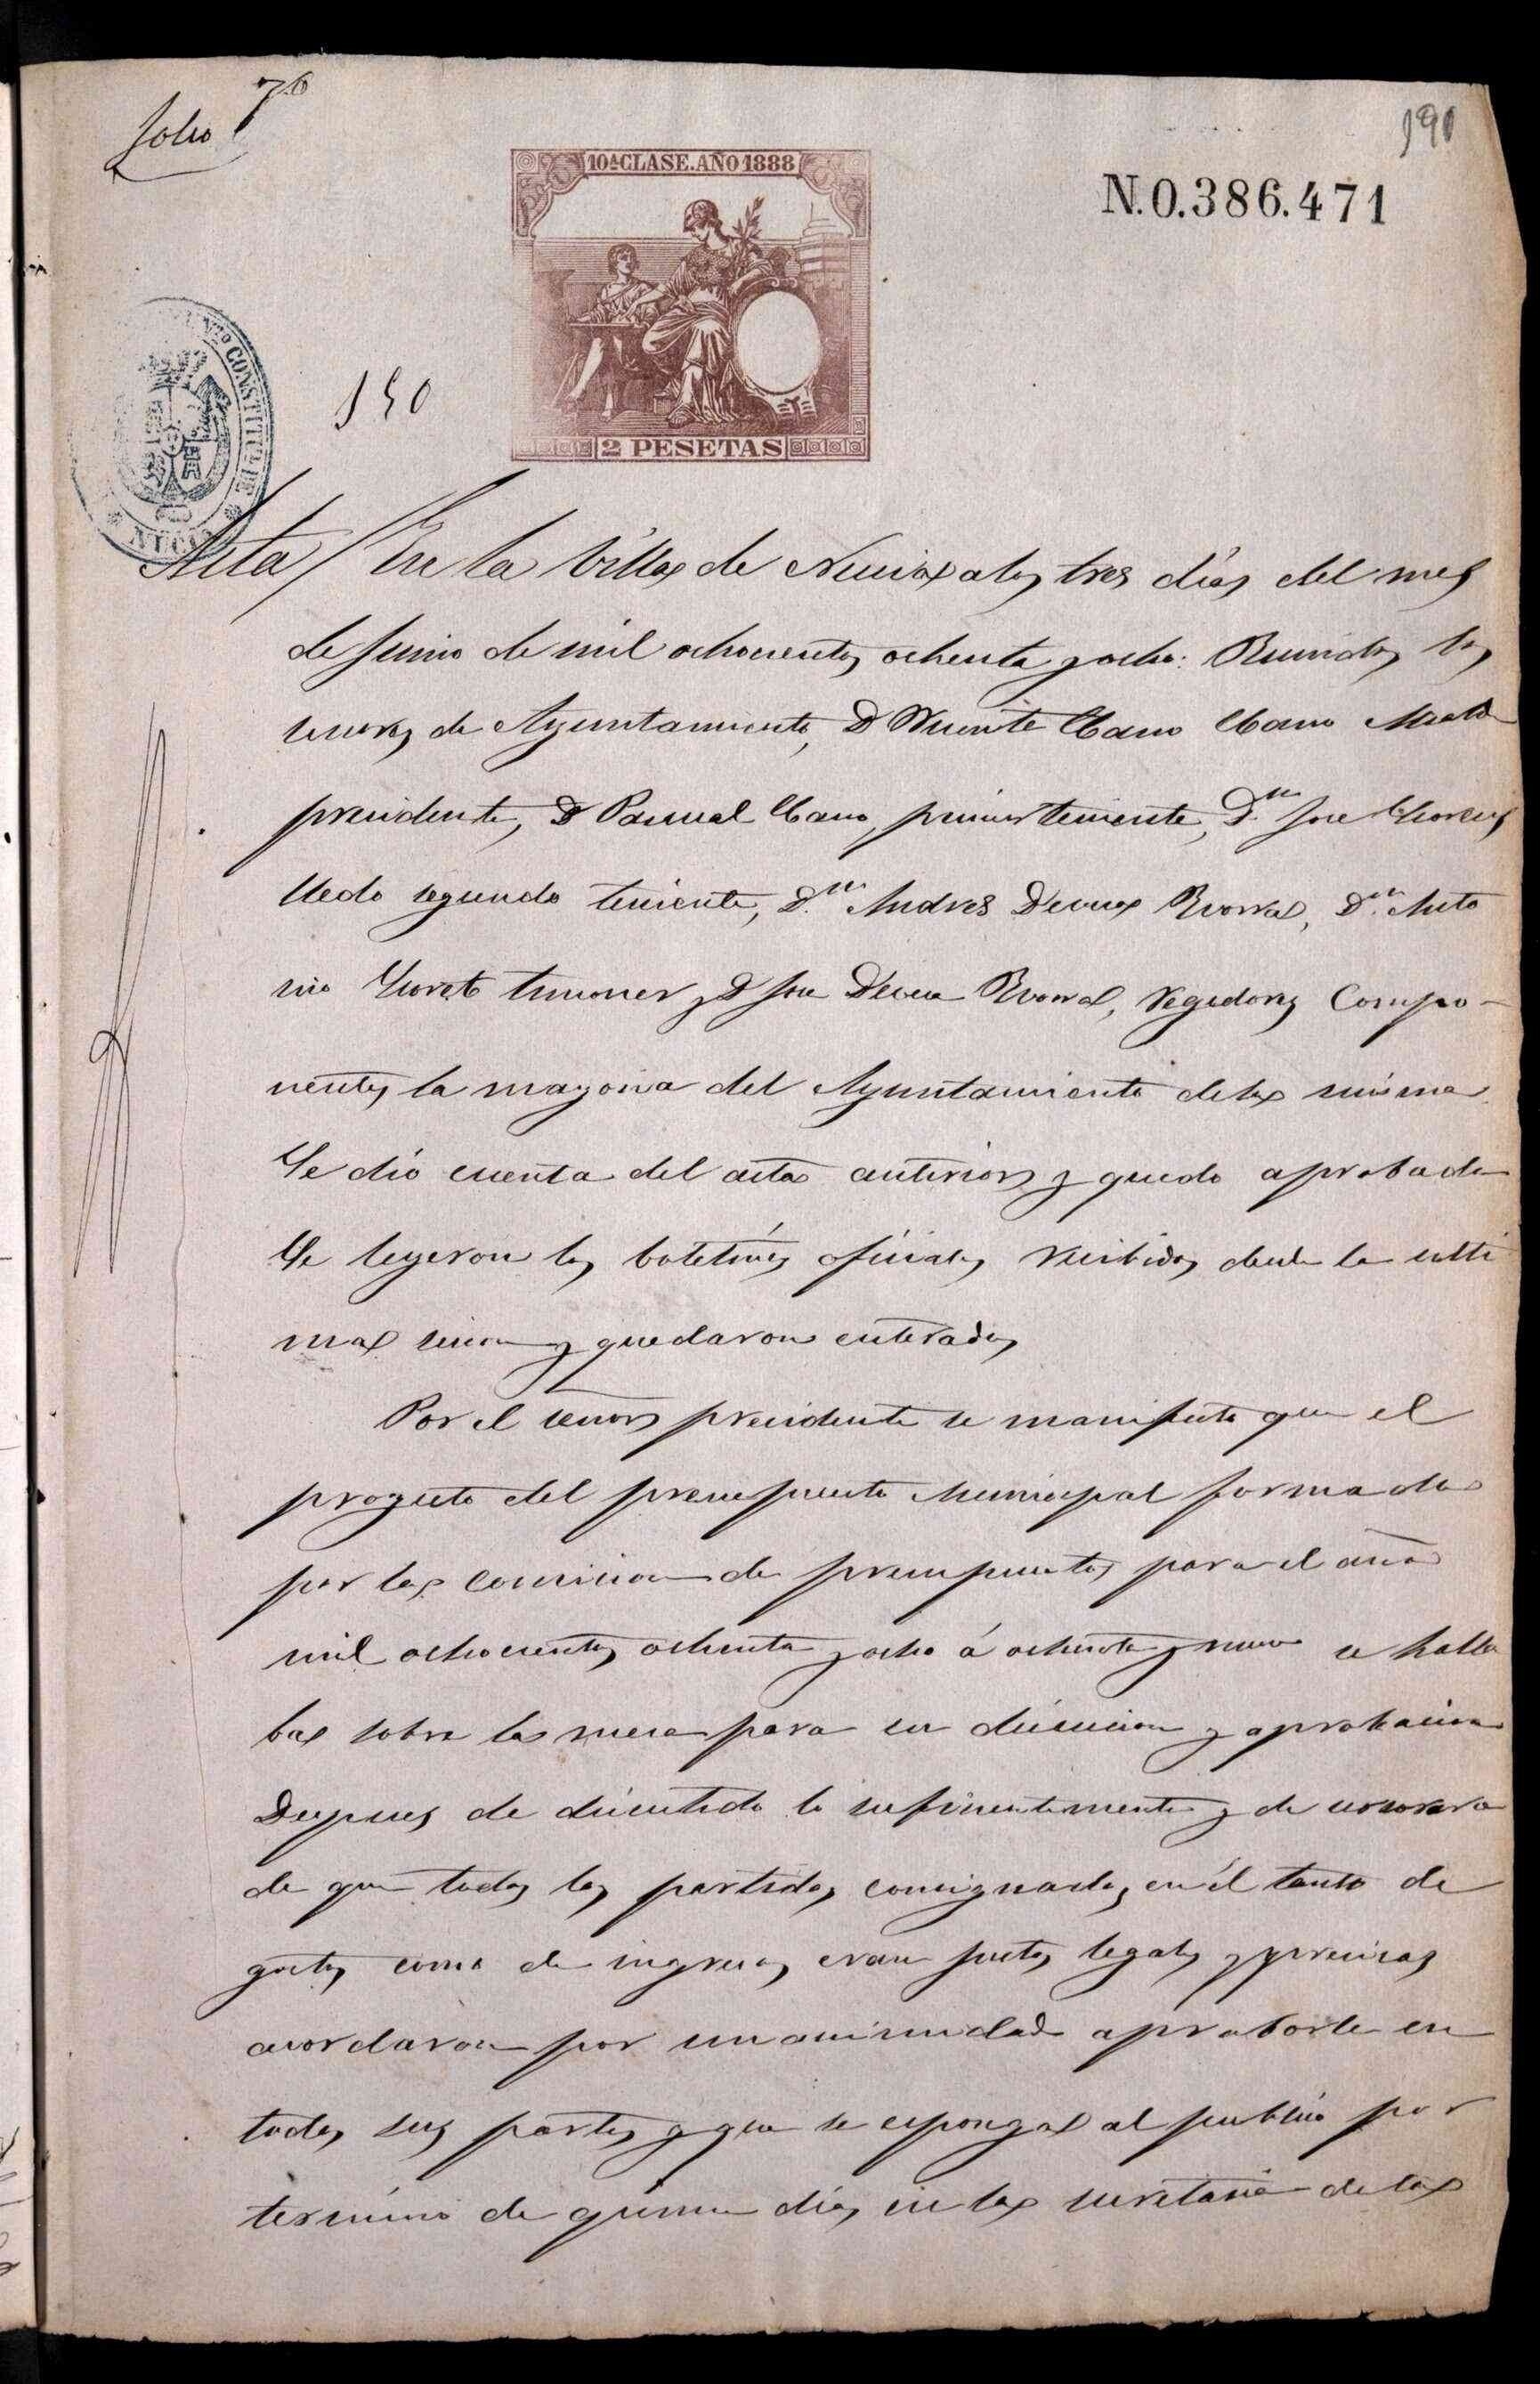 folio 76
190
10ª CLASE. AÑO 1888
N.0.386.471
CONSTITUL. DE
NUCIA
190
2 PESETAS
Acta / En la Villa de Nucia a los tres dias del mes
de Junio de mil ochocientos ochenta y ocho: Reunidos los
señores de Ayuntamiento, D Vicente Cano Cano Alcalde
presidente, D Pascual Cano, primer teniente, D.n Jose Llorens
lledo segundo teniente, D.n Andres Devesa, D.n Anto
nio Lloret timoner y D Jose Devesa, regidores Compo-
nentes la mayoria del Ayuntamiento de la misma
Se dio cuenta del acta anterior y quedo aprobada
Se leyeron los boletines oficiales recibidos desde la ulti
ma secion y quedaron enterados
Por el señor presidente se manifesto que el
proyecto del presupuesto Municipal formado
por la comicion de presupuestos para el año
mil ochocientos ochenta y ocho á ochenta y nueve se halla
ba sobre la mesa para su discucion y aprobacion
Despues de discutido lo suficientemente y de
de que todas las partidas consignadas en él tanto de
gastos como de ingresos eran justas legales y precisas
acordaron por unanimidad aprobarle en
todas sus partes y que se esponga al publico por
termino de quince dias en la secretaria de la